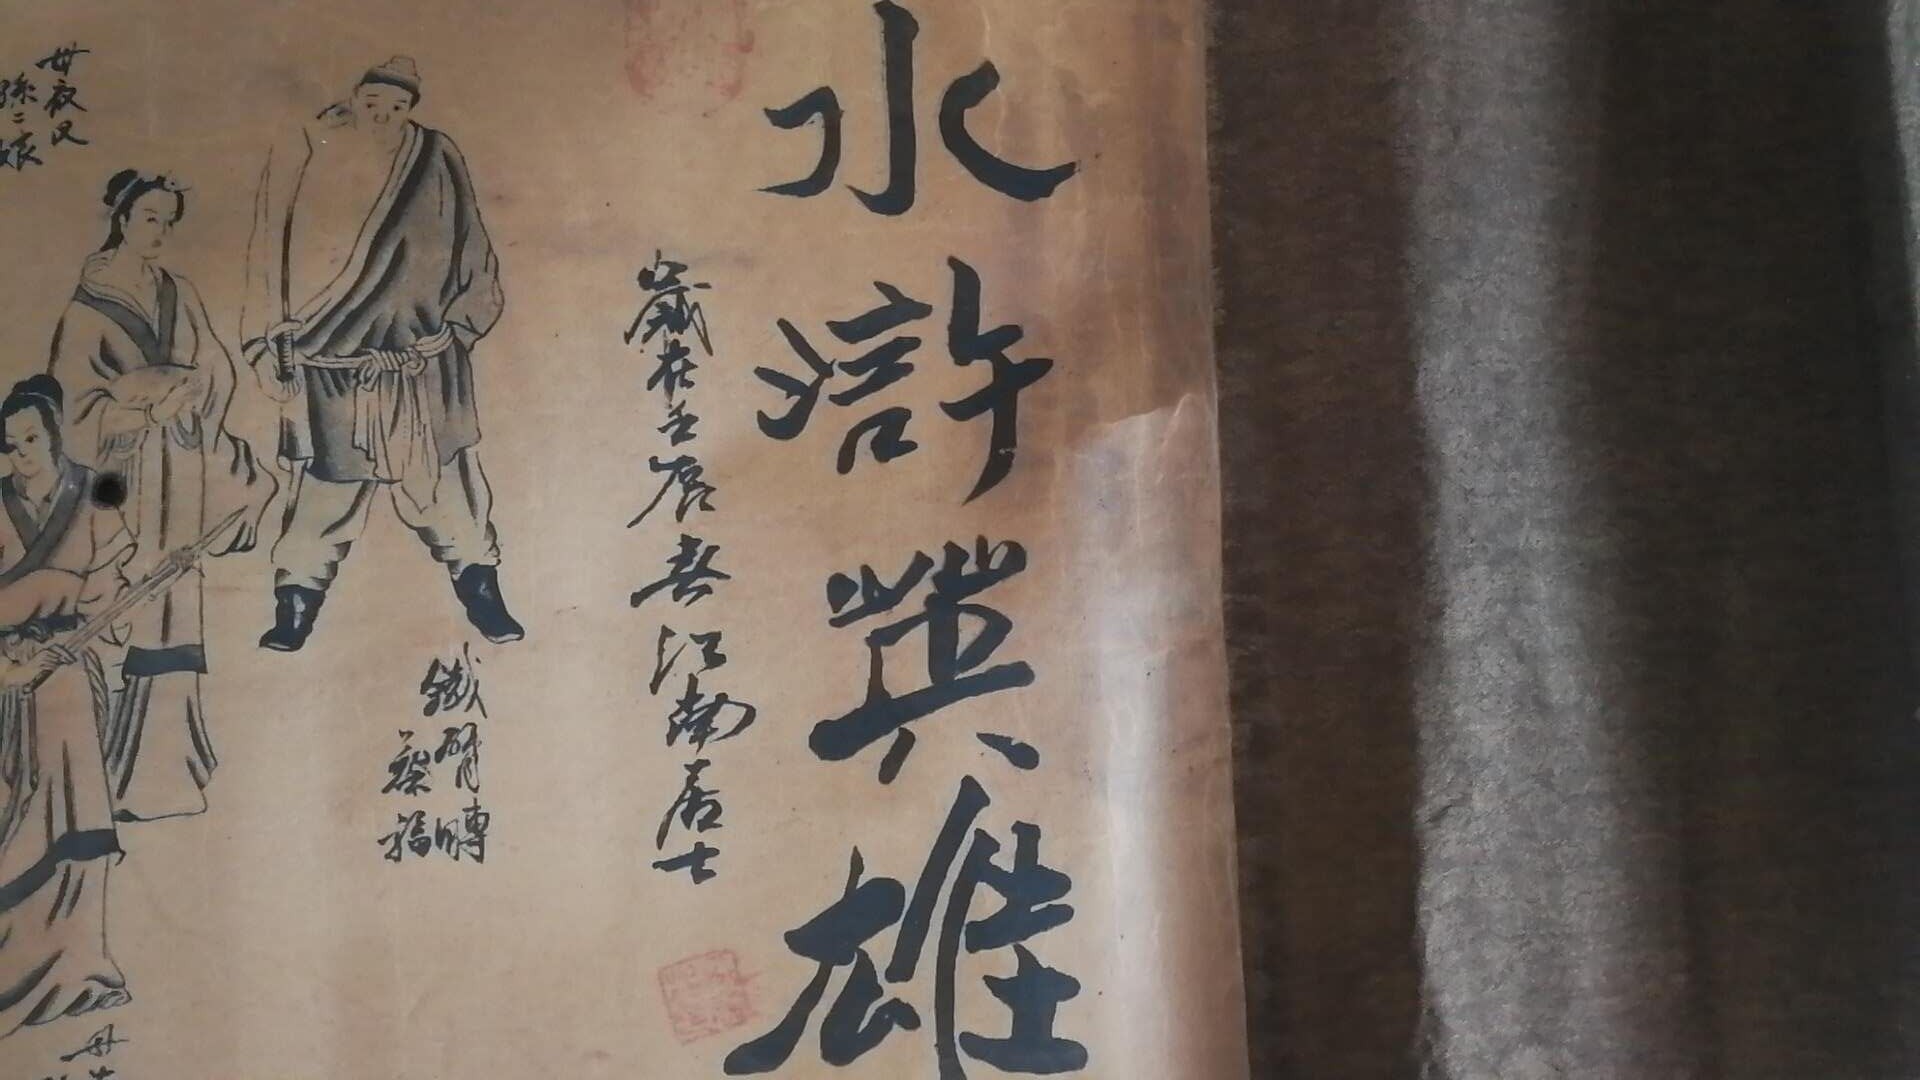 水滸英雄
歲在壬辰春江南居士
鐵臂膊
蔡福
母夜叉
孫二娘